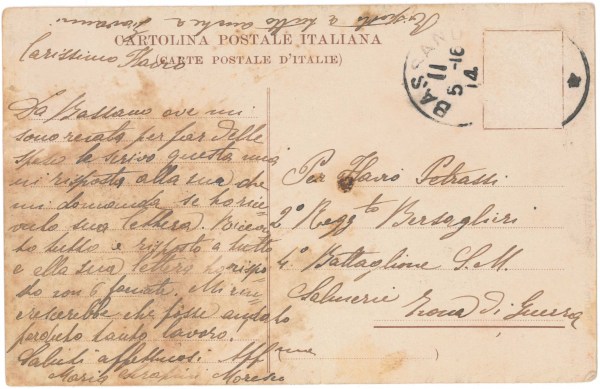 Risposto a tutto anche a Giovanni
CARTOLINA POSTALE ITALIANA
(CARTE POSTALE D'ITALIE)
BASSANO
11
5-16
14
Carissimo Flavio
Da Bassano ove mi
sono recata per far delle
spese le scrivo questa mia
in risposta alla sua che
mi domanda se ho rice
vuto sua lettera. Ricevu
to tutto e risposto a tutto
e alla sua lettera ho rispo
sto con 6 facciate. Mi rin
crescerebbe che fosse andato
perduto tanto lavoro.
Saluti affettuosi. Aff
Maria Serafini Moresco
Per Flavio Petrassi
2º Regg.to Bersaglieri
4º Battaglione S.M.
Salmerie
Zona di Guerra